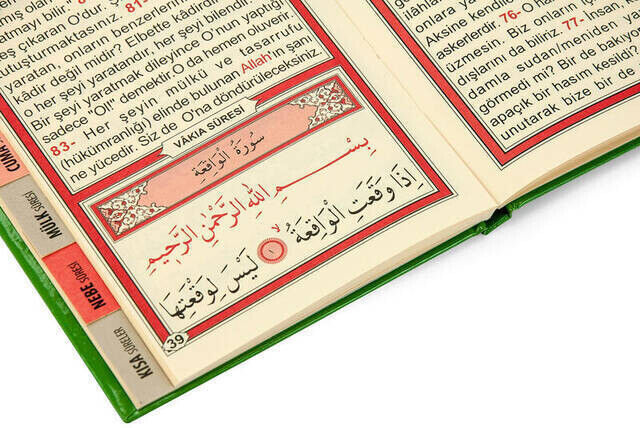 atmayı bilir."
eş çıkaran O'dur.
tuşturmaktasınız.
yaratan, onların benzerlerini
kâdir değil midir? Elbette kâdirdir.
O her şeyi yaratandır, her şeyi bilendir.
Bir şeyi yaratmak dileyince O'nun yaptığı
sadece "Ol!" demektir O da hemen oluverir.
83- Her şeyin mülkü ve tasarrufu
(hükümranlığı) elinde bulunan Allah'ın şanı
ne yücedir. Siz de O'na döndürüleceksiniz.
VÂKIA SÛRESİ
سُورَةُ الْوَاقِعَةِ
بِسْمِ اللهِ الرَّحْمٰنِ الرَّحِيمِ
اِذَا وَقَعَتِ الْوَاقِعَةُ ۙ ١ لَيْسَ لِوَقْعَتِهَا
39
CUMA
MÜLK SÛRESİ
NEBE SÛRESİ
KISA SÛRELER
onlara ya
Aksine kendil
askerlerdir. 76- O ha
üzmesin. Biz onların
dışlarını da biliriz. 77- İnsan
damla sudan/meniden ya
görmedi mi? Bir de bakıyo
apaçık bir hasım kesildi?
unutarak bize bir de